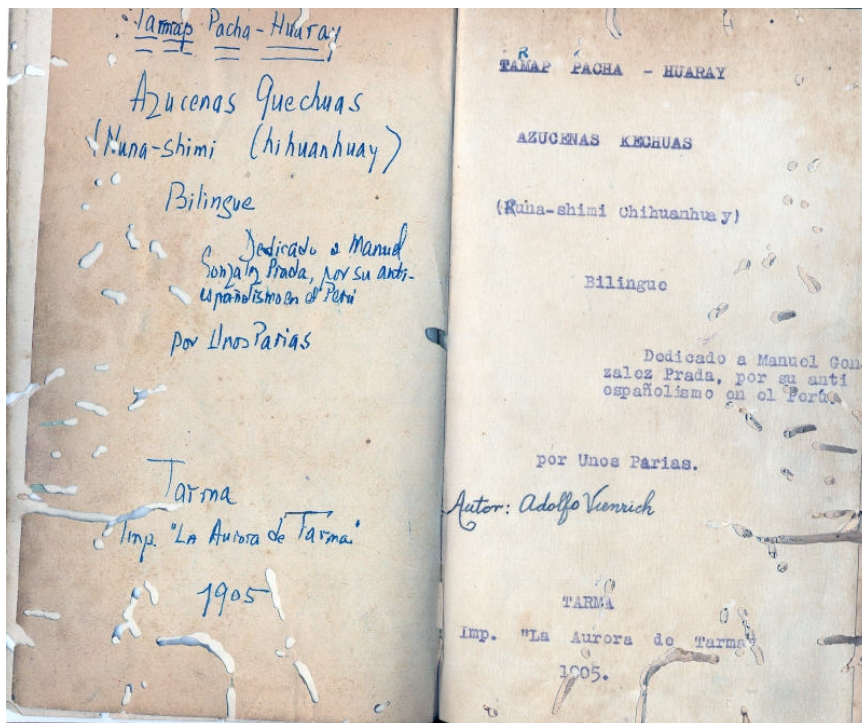 Tarmap Pacha-Huaray
Azucenas Quechuas
(Nuna-shimi Chihuanhuay)
Bilingue
Dedicado a Manuel
Gonzalez Prada, por su anti-
españolismo en el Perú
por Unos Parias
Tarma
Imp. "La Aurora de Tarma"
1905
R
TAMAP PACHA - HUARAY
AZUCENAS KECHUAS
(Runa-shimi Chihuanhuay)
Bilingue
Dedicado a Manuel Gon
zalez Prada, por su anti
españolismo en el Perú.
por Unos Parias.
Autor: Adolfo Vienrich
TARMA
Imp. "La Aurora de Tarma"
1905.